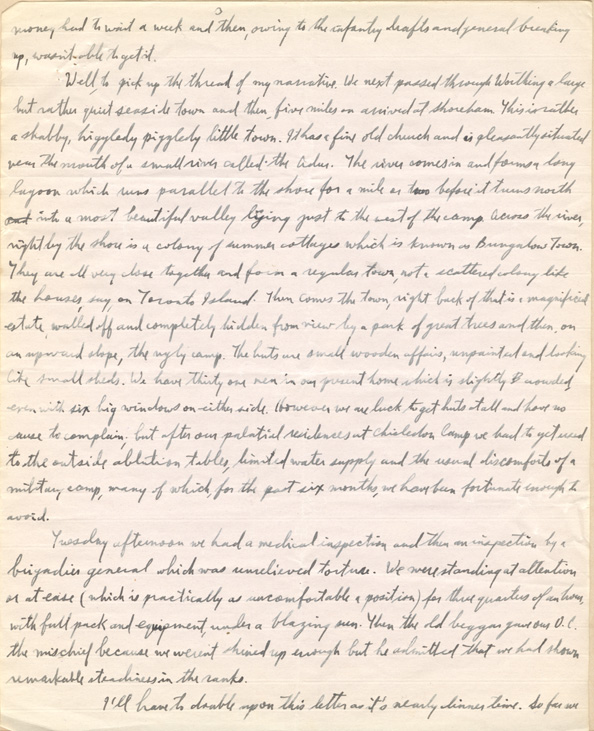 money had to wait a week and then, owing to the infantry drafts and general breaking
up, wasn't able to get it.
Well to pick up the thread of my narrative. We next passed through Worthing a large
but rather quiet seaside town and then five miles on arrived at Shoreham. This is rather
a shabby, higgledy piggledy little town. It has a fine old church and is pleasantly situated
near the mouth of a small river called the Adur. The river comes in and forms a long
lagoon which runs parallel to the shore for a mile or two before it turns north
into a most beautiful valley lying just to the west of the camp. Across the river,
right by the shore is a colony of summer cottages which is known as Bungalow Town.
They are all very close together and form a regular town, not a scattered colony like
the houses, say, on Toronto Island. Then comes the town, right back of that is a magnificent
estate, walled off and completely hidden from view by a park of great trees and then, on
an upward slope, the ugly camp. The huts are small wooden affairs, unpainted and looking
like small sheds. We have thirty one men in our present home which is slightly crowded,
even with six big windows on either side. However we are luck to get huts at all and have no
cause to complain, but after our palatial residences at Chisledon Camp we had to get used
to the outside ablution tables, limited water supply and the usual discomforts of a
military camp, many of which, for the past six months, we have been fortunate enough to
avoid.
Tuesday afternoon we had a medical inspection and then an inspection by a
brigadier general which was unrelieved torture. We were standing at attention
or at ease (which is practically as uncomfortable a position) for three quarters of an hour,
with full pack and equipment, under a blazing sun. Then the old beggar gave our O.C.
the mischief because we weren't shined up enough but he admitted that we had shown
remarkable steadiness in the ranks.
I'll have to double up on this letter as it's nearly dinner time. So far we